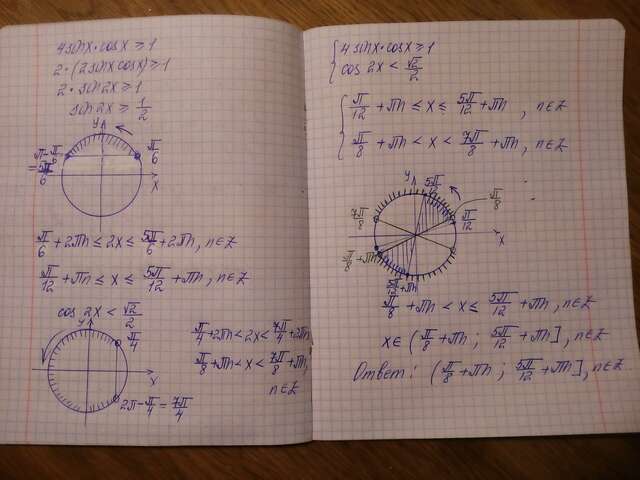 4 sinx·cosx ≥ 1
2·(2sinx cosx) ≥ 1
2·sin2x ≥ 1
sin2x ≥ 1/2
y
π - π/6 = 5π/6
π/6
x
π/6 + 2πn ≤ 2x ≤ 5π/6 + 2πn, n∈Z
π/12 + πn ≤ x ≤ 5π/12 + πn, n∈Z
cos 2x < √2/2
y
π/4
x
2π - π/4 = 7π/4
π/4 + 2πn < 2x < 7π/4 + 2πn
π/8 + πn < x < 7π/8 + πn,
n∈Z
{ 4 sinx·cosx ≥ 1
cos 2x < √2/2
{ π/12 + πn ≤ x ≤ 5π/12 + πn, n∈Z
π/8 + πn < x < 7π/8 + πn, n∈Z
y
5π/12
π/8
7π/8
π/12
x
π/8 + πn
5π/12 + πn
π/8 + πn < x ≤ 5π/12 + πn, n∈Z
x∈ (π/8 + πn; 5π/12 + πn], n∈Z
Ответ: (π/8 + πn; 5π/12 + πn], n∈Z